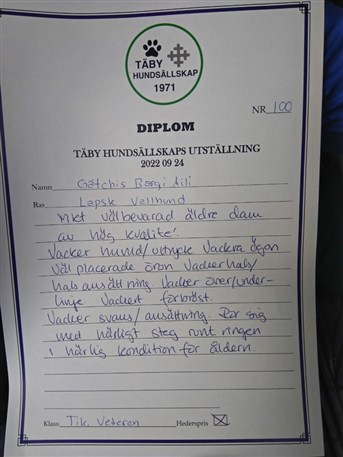 TÄBY
HUNDSÄLLSKAP
1971
NR 100
DIPLOM
TÄBY HUNDSÄLLSKAPS UTSTÄLLNING
2022 09 24
Namn Götchis Bergi Aili
Ras Lapsk Vallhund
Mkt välbevarad äldre dam
av hög kvalité!
Vacker huvud/uttryck Vackra ögon
Väl placerade öron Vacker hals/
hals ansättning. Vacker över/under-
linje Vackert förbröst.
Vacker svans/ansättning. Rör sig
med härligt steg runt ringen
i härlig kondition för åldern.
Klass Tik. Veteran Hederspris